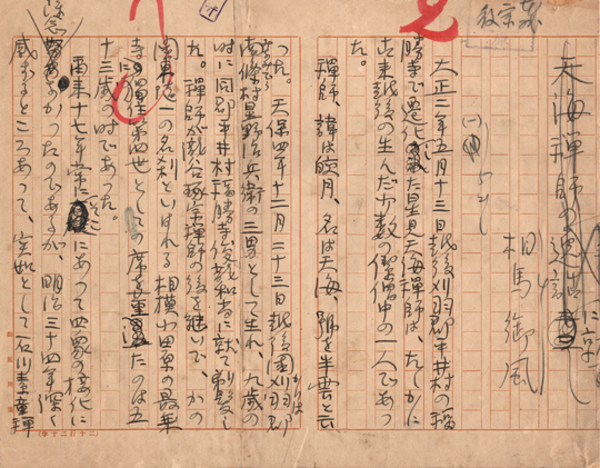 天海禅師の
相馬御風
大正二年五月十三日越後刈羽郡平井村の福
勝寺で遷化された星見天海禅師は、たしかに
古来越後の生んだ少数の傑僧中の一人であつ
た。
禅師、諱は皎月、名は天海、號を半雲と云
つた。天保四年十二月二十三日越後国刈羽郡
吉條村星野治兵衛の三男として生れ、九歳の
時に同郡平井村福勝寺俊茂和尚に就て剃髪し
た。禅師が畔上琢宗禅師の後を継いで、かの
関東随一の名刹といはれる相模小田原の最乗
寺に独住第四世としての席を董したのは五
十三歳の時であつた。
爾来十七年常にそこにあつて四衆の接化に
かつたのであるが、明治三十四年深く
感ずるところあつて、突如として石川素童禅